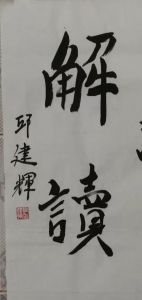 解讀
邱建輝